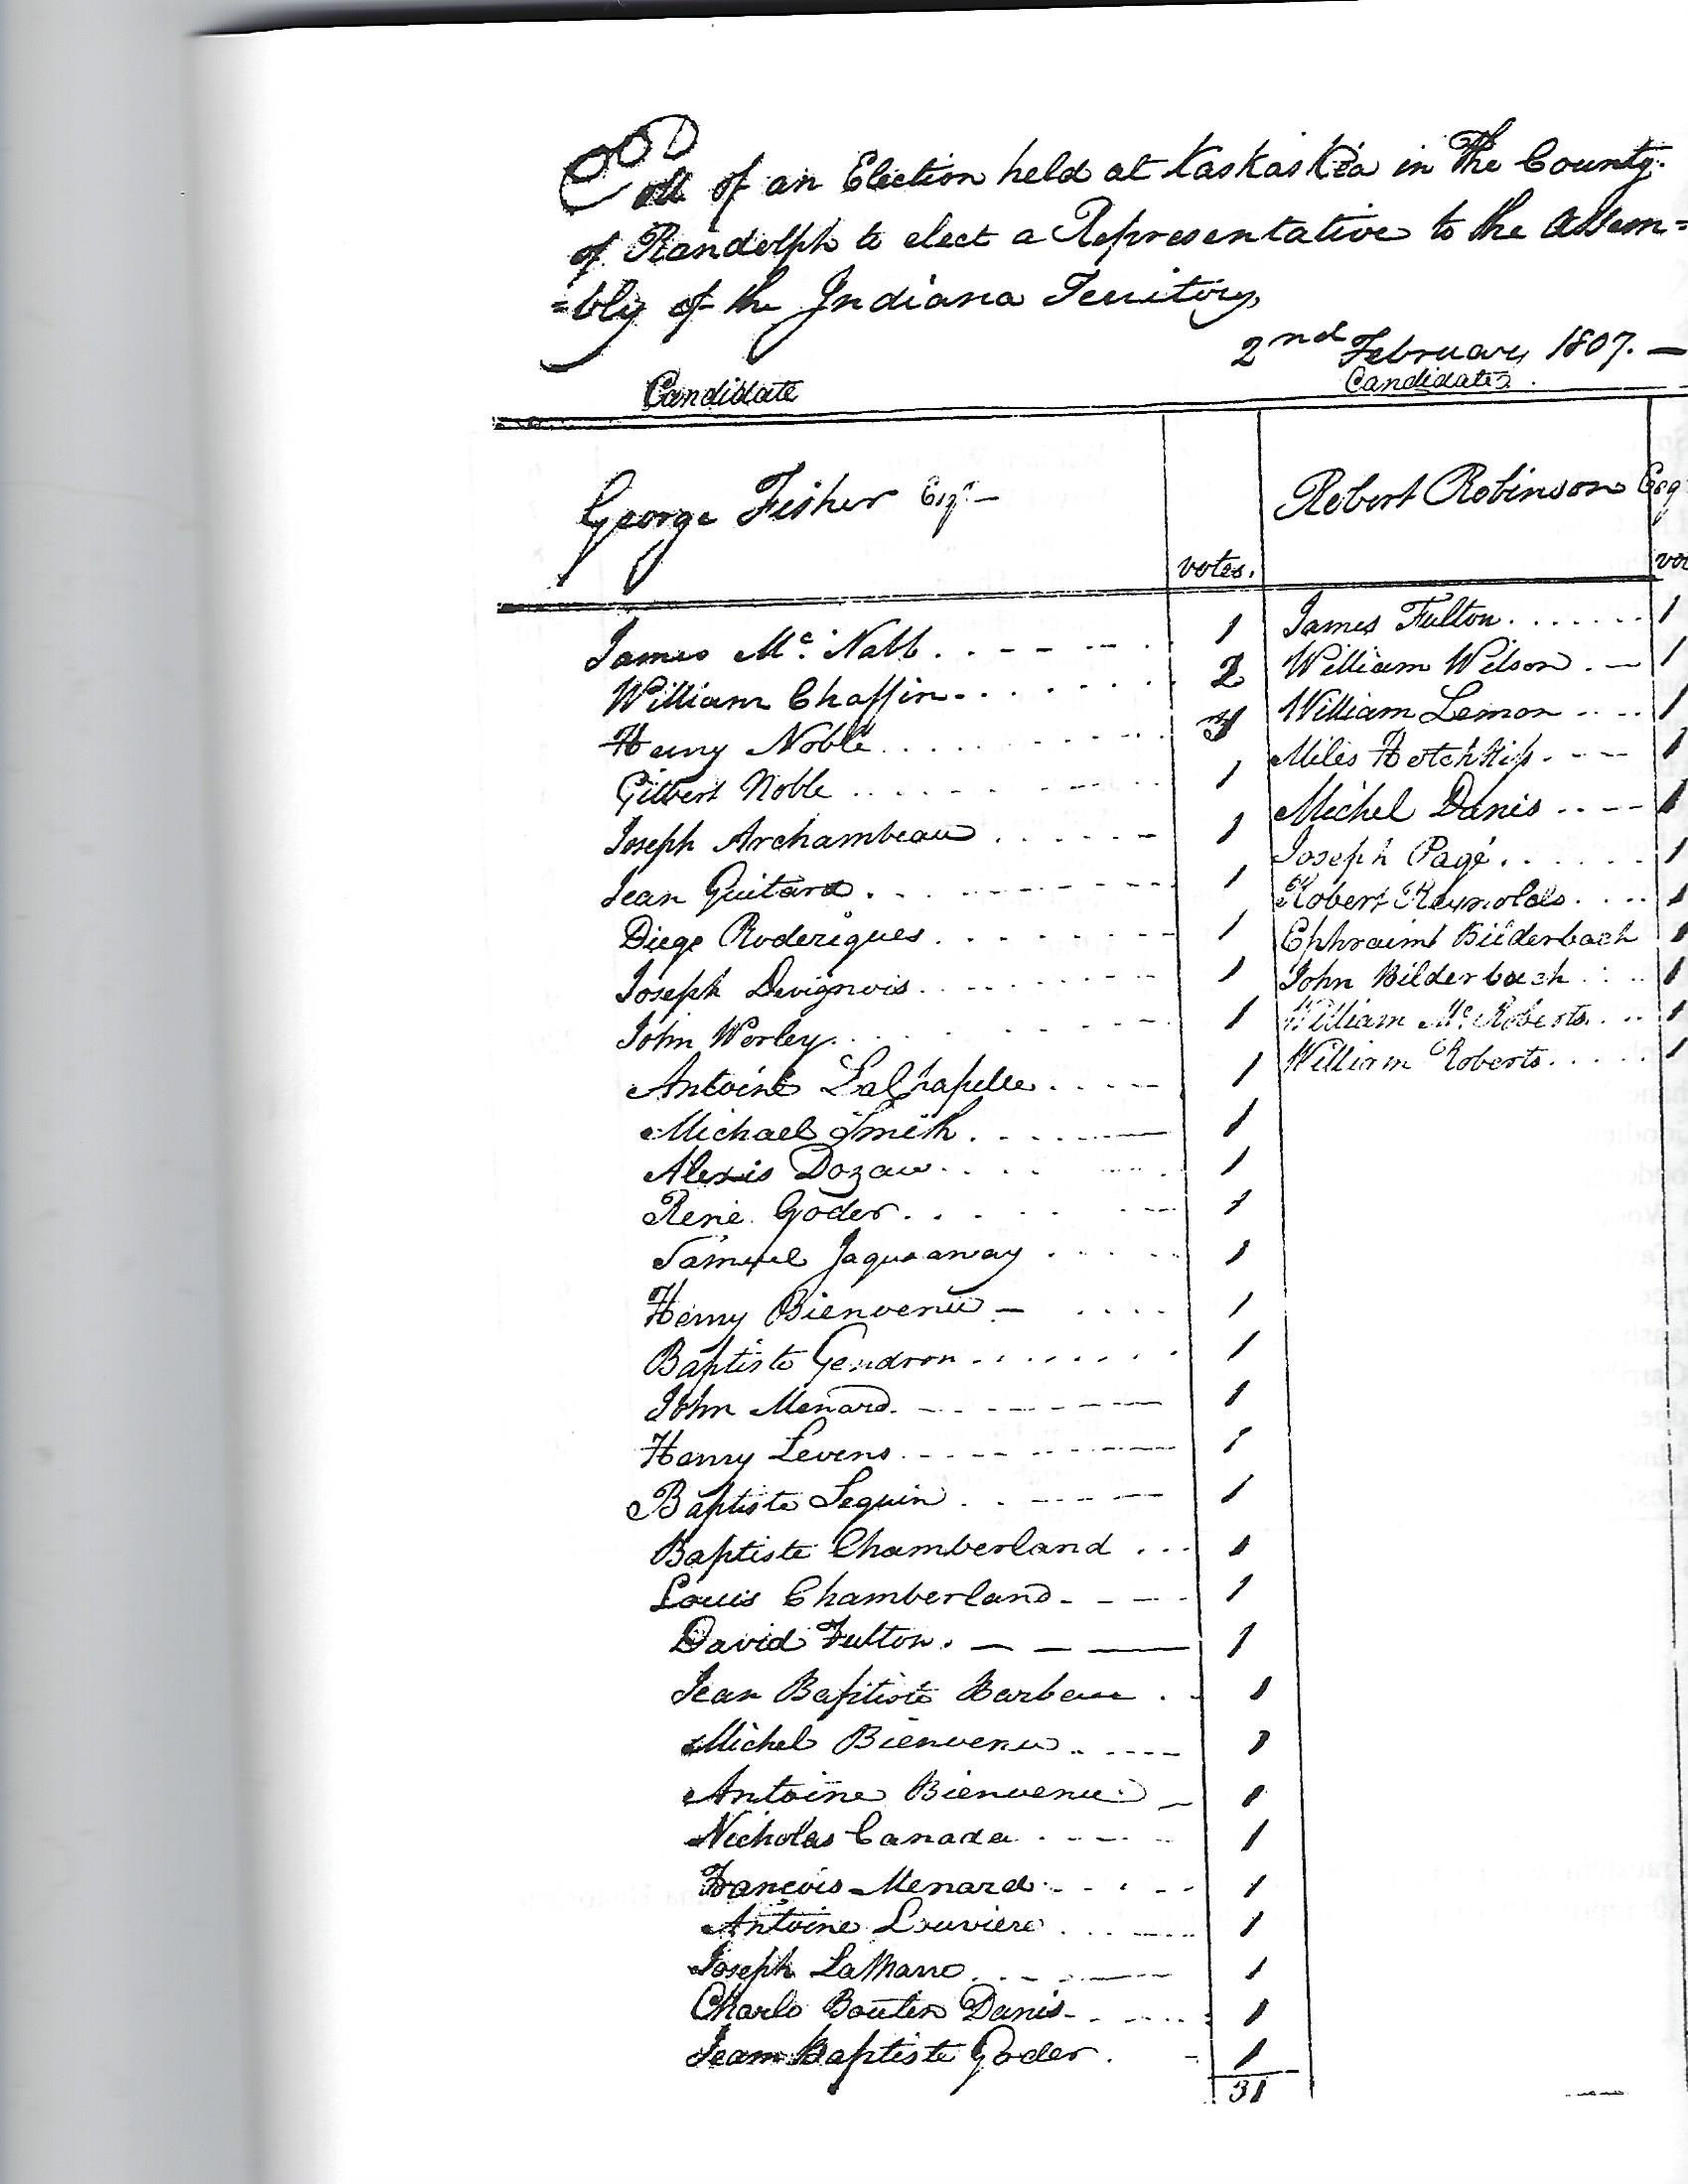 Poll of an Election held at Kaskaskia in the County
of Randolph to elect a Representative to the Assem=
=bly of the Indiana Territory
2nd February 1807. —
Candidate
Candidates.
George Fisher Esqr —
votes.
Robert Robinson Esq
vot
James Mc. Nabb 1
William Chaffin 2
Henry Noble 3
Gilbert Noble 1
Joseph Archambeau 1
Jean Guitard 1
Diego Roderigues 1
Joseph Devignois 1
John Worley 1
Antoine LaChapelle 1
Michael Smith 1
Alexis Dozau 1
René Goder 1
Samuel Jaquaway 1
Henry Bienvenu 1
Baptiste Gendron 1
John Menard 1
Henry Levens 1
Baptiste Seguin 1
Baptiste Chamberland 1
Louis Chamberland 1
David Fulton 1
Jean Baptiste Barbeau 1
Michel Bienvenu 1
Antoine Bienvenu 1
Nicholas Canada 1
François Menard 1
Antoine Louviere 1
Joseph 1
Charle Danis 1
Jean Baptiste Goder 1
31
James Fulton 1
William Wilson 1
William Lemon 1
Miles Hotchkiss 1
Michel Danis 1
Joseph Pagé 1
Robert Reynolds 1
Ephraim Bilderbach 1
John Bilderbach 1
William Mc. Roberts 1
William Roberts 1